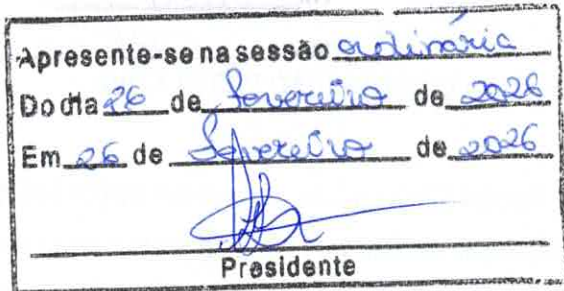 Apresente-se na sessão ordinária
Do dia 26 de fevereiro de 2026
Em 26 de fevereiro de 2026
Presidente